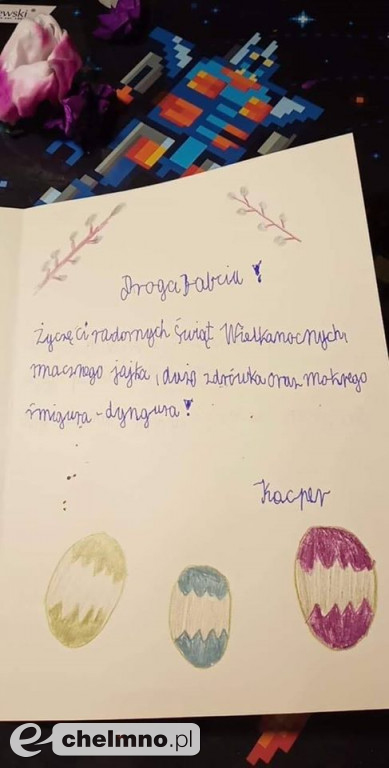 ewski
Droga Babciu!
Życzę Ci radosnych Świąt Wielkanocnych,
smacznego jajka, dużo zdrówka oraz mokrego
śmigusa-dyngusa!
Kacper
e-chelmno.pl